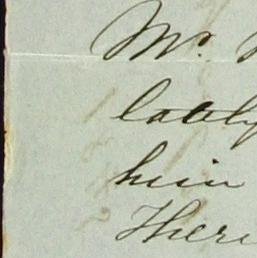 Mr.
lately
him
There